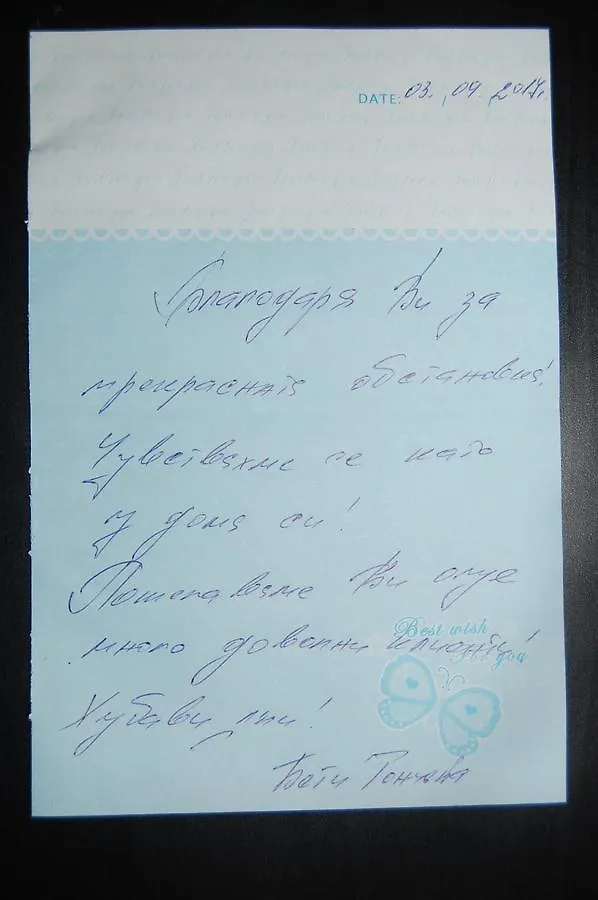 DATE: 03.09.2017г.
Благодаря Ви за
прекрасната обстановка!
Чувствахме се като
у дома си!
Пожелаваме Ви още
много доволни клиенти!
Best wish
for you
Хубави дни!
Бети Тончева